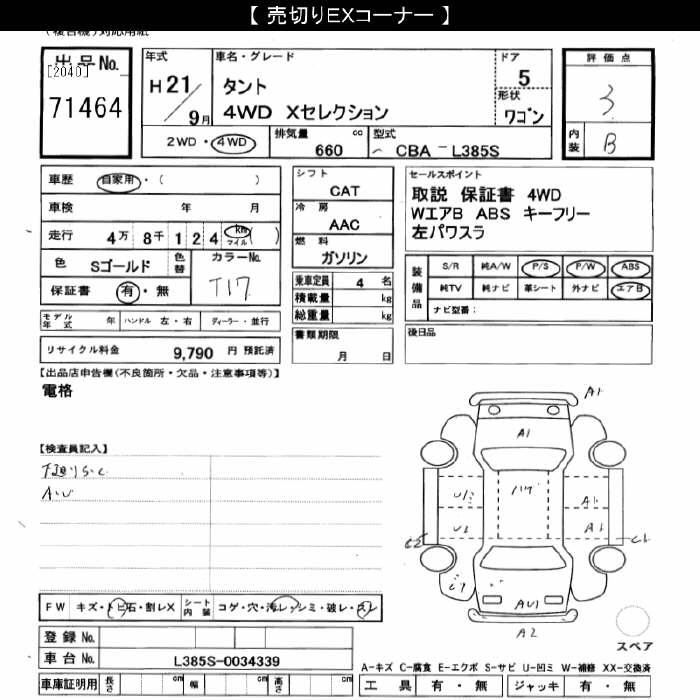 【 売切りEXコーナー 】
(複合機)対応用紙
出品No.
[2040]
71464
年式
H21/9月
車名・グレード
タント
4WD Xセレクション
ドア
5
形状
ワゴン
評価点
3
内装
B
2WD・4WD
排気量
660
cc
型式
CBA-L385S
車歴
自家用・( )
車検
年 月
走行
4万 8千124
km
マイル
( )
色
Sゴールド
色替
カラーNo.
T17
保証書
有・無
モデル年式
年
ハンドル 左・右
ディーラー・並行
リサイクル料金
9,790 円 預託済
シフト
CAT
冷房
AAC
燃料
ガソリン
乗車定員
4 名
積載量
kg
総重量
kg
書類期限
月 日
セールスポイント
取説 保証書 4WD
WエアB ABS キーフリー
左パワスラ
装備品
S/R 純A/W P/S P/W ABS
純TV 純ナビ 革シート 外ナビ エアB
ナビ型番：
後日品
【出品店申告欄(不良箇所・欠品・注意事項等)】
電格
【検査員記入】
下廻りS.C
A.U
A1
A1
ハゲ
U2
U1
A1
A1
C2
C1
AU1
A2
スペア
FW
キズ・トビ石・割レX
シート内装
コゲ・穴・汚レ・シミ・破レ・スレ
登録 No.
車台 No.
L385S-0034339
車庫証明用
長さ
cm
幅
cm
高さ
cm
A-キズ C-腐食 E-エクボ S-サビ U-凹ミ W-補修 XX-交換済
工具
有・無
ジャッキ
有・無